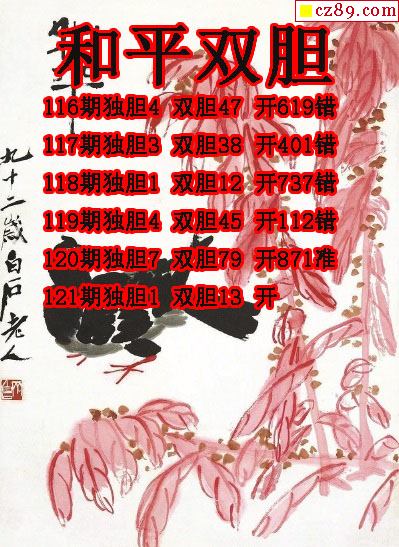 cz89.com
和平双胆
116期独胆4 双胆47 开619错
117期独胆3 双胆38 开401错
118期独胆1 双胆12 开737错
119期独胆4 双胆45 开112错
120期独胆7 双胆79 开871准
121期独胆1 双胆13 开
九十二岁白石老人